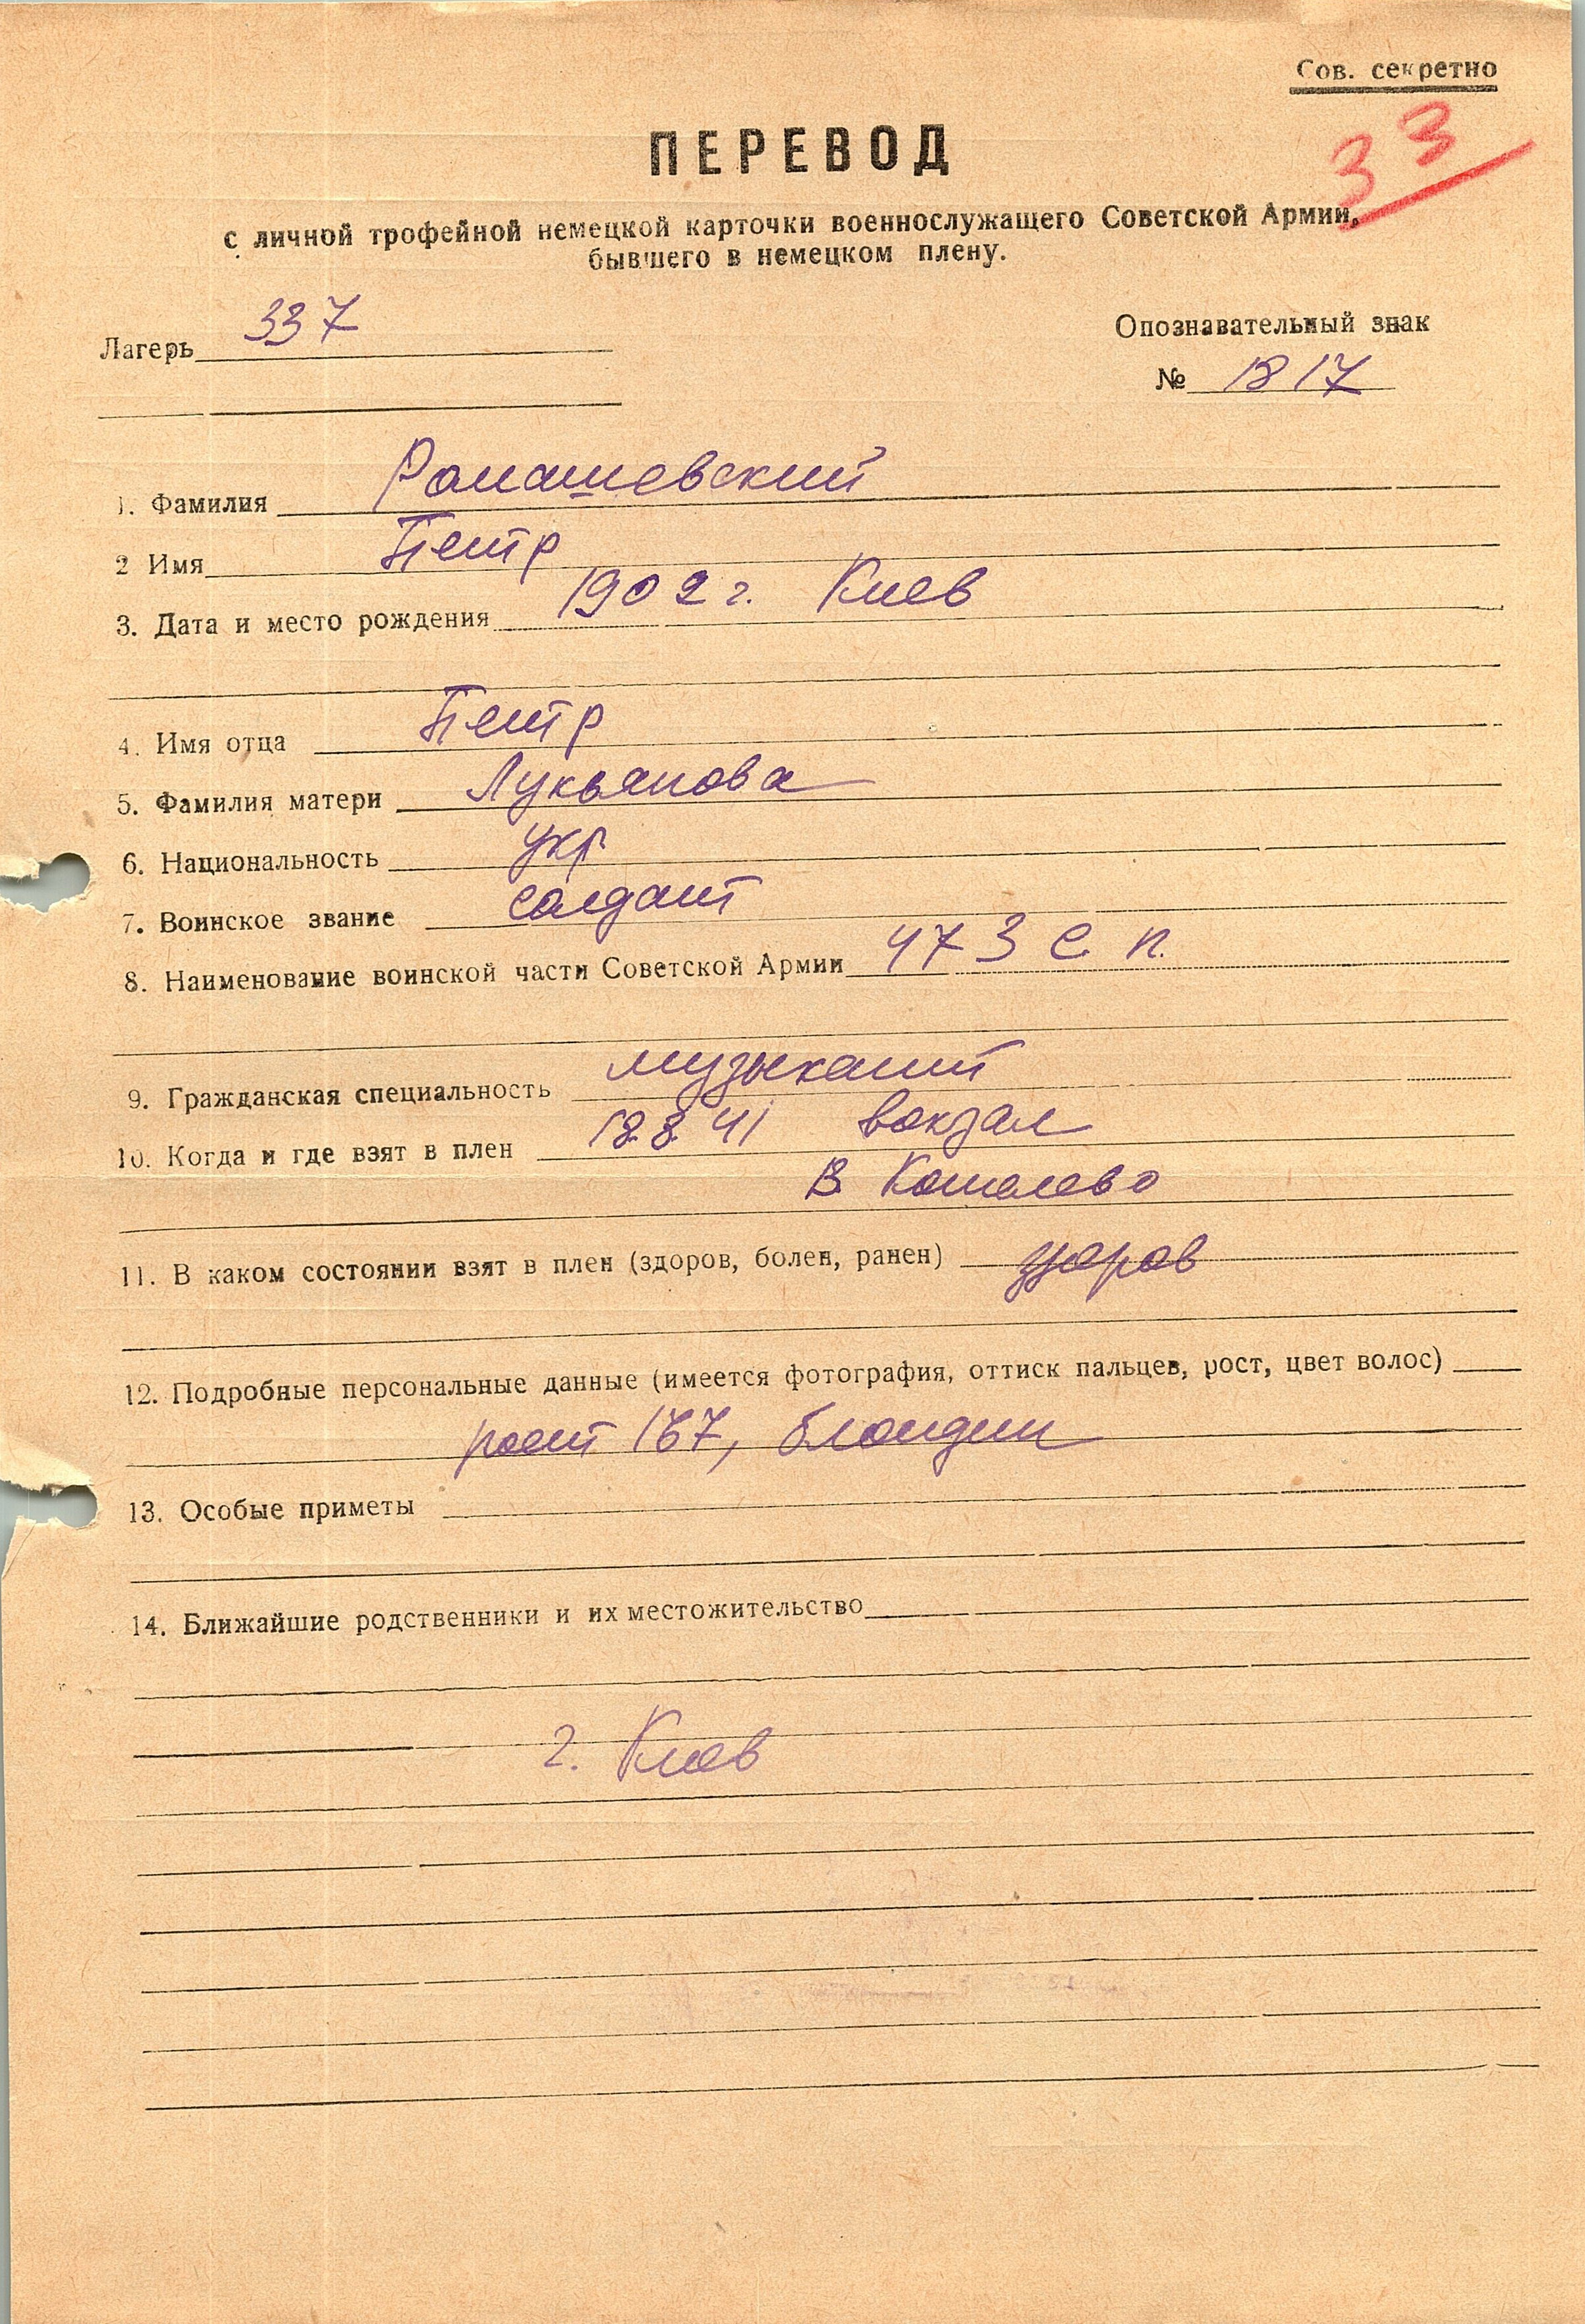 Сов. секретно
33
ПЕРЕВОД
с личной трофейной немецкой карточки военнослужащего Советской Армии,
бывшего в немецком плену.
Лагерь 337
Опознавательный знак
№ 1817
1. Фамилия Ромашевский
2 Имя Петр
3. Дата и место рождения 1902 г. Киев
4. Имя отца Петр
5. Фамилия матери Лукьянова
6. Национальность укр
7. Воинское звание солдат
8. Наименование воинской части Советской Армии 473 с. п.
9. Гражданская специальность музыкант
10. Когда и где взят в плен 18.8.41 вокзал
В Кошелево
11. В каком состоянии взят в плен (здоров, болен, ранен) здоров
12. Подробные персональные данные (имеется фотография, оттиск пальцев, рост, цвет волос)
рост 167, блондин
13. Особые приметы
14. Ближайшие родственники и их местожительство
г. Киев